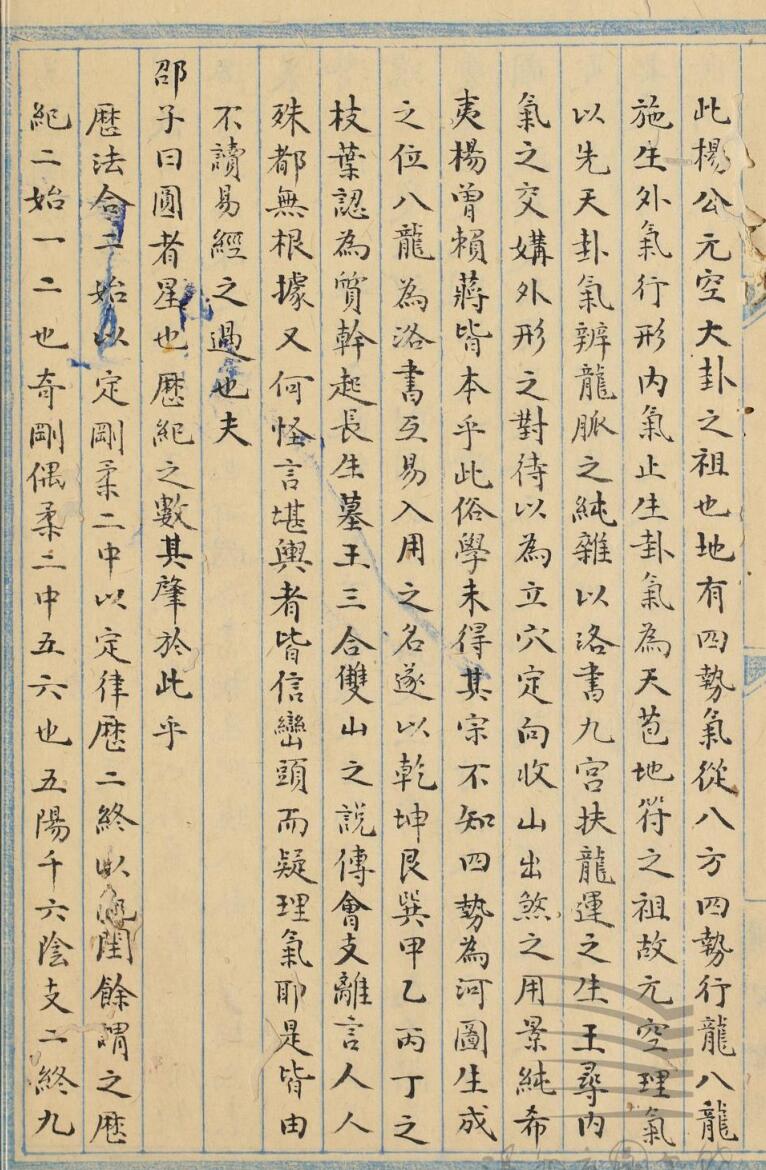 此楊公元空大卦之祖也地有四勢氣從八方四勢行龍八龍
施生外氣行形內氣止生卦氣為天苞地符之祖故元空理氣
以先天卦氣辨龍脈之純雜以洛書九宮扶龍運之生王尋內
氣之交媾外形之對待以為立穴定向收山出煞之用景純希
夷楊曾賴蔣皆本乎此俗學未得其宗不知四勢為河圖生成
之位八龍為洛書互易入用之名遂以乾坤艮巽甲乙丙丁之
枝葉認為質幹起長生墓王三合雙山之說傅會支離言人人
殊都無根據又何怪言堪輿者皆信巒頭而疑理氣耶是皆由
不讀易經之過也夫
邵子曰圓者星也歷紀之數其肇於此乎
歷法合二始以定剛柔二中以定律歷二終以閏餘謂之歷
紀二始一二也奇剛偶柔二中五六也五陽干六陰支二終九